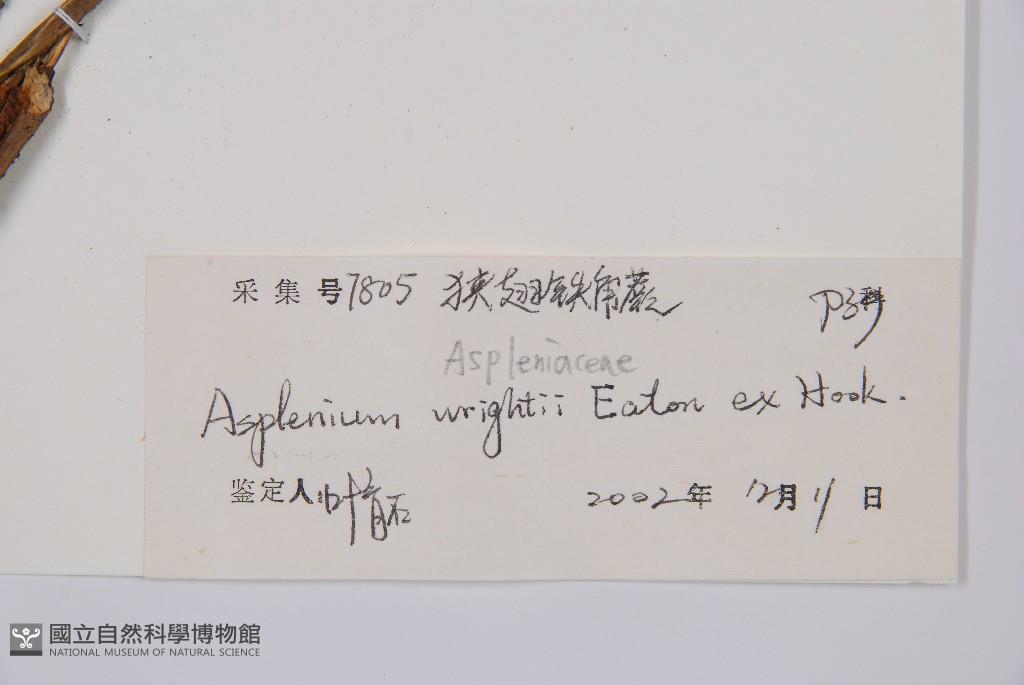 采集号7805 狭翅铁角蕨 P31科
Aspleniaceae
Asplenium wrightii Eaton ex Hook.
鉴定人 2002年 12月 11日
國立自然科學博物館
NATIONAL MUSEUM OF NATURAL SCIENCE